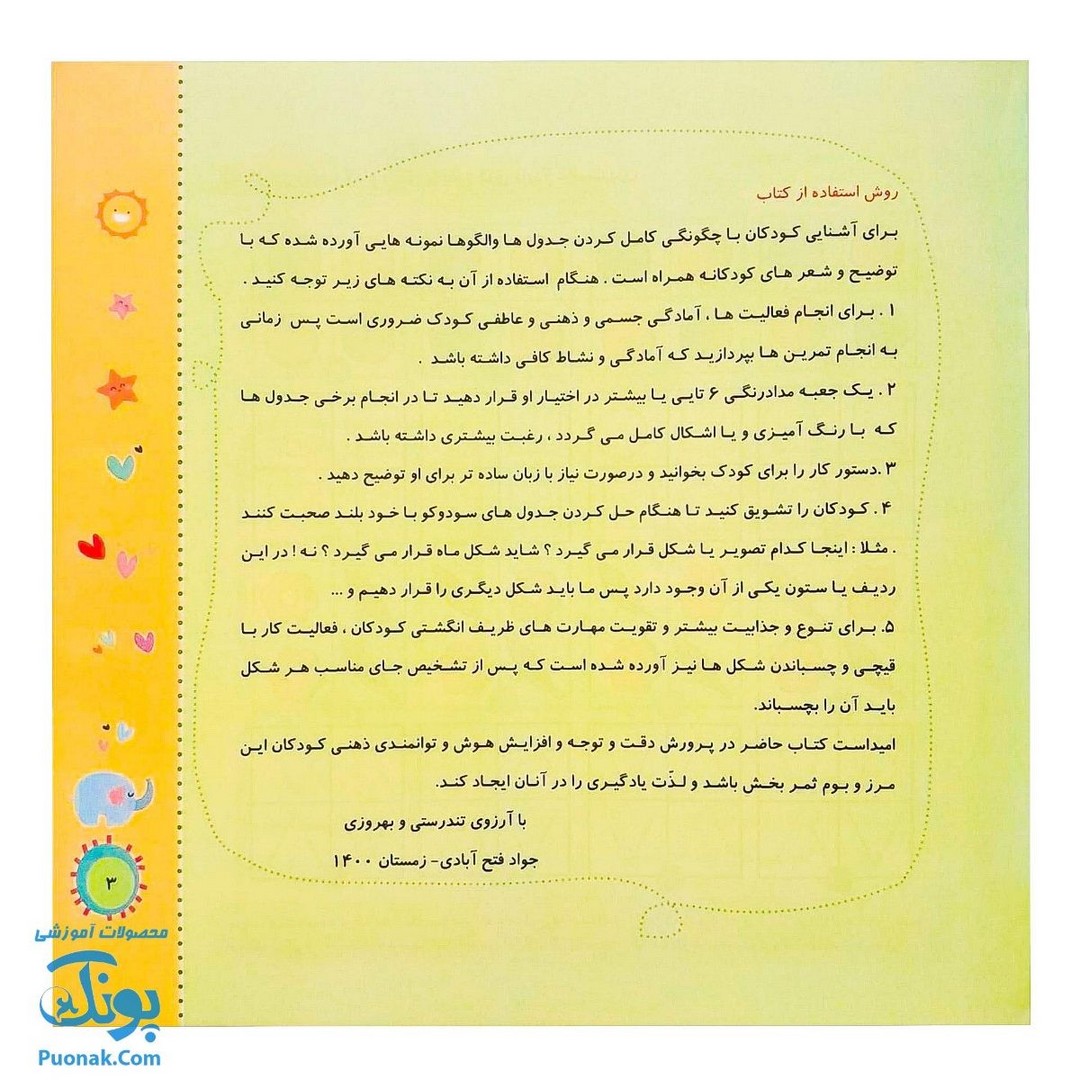 روش استفاده از کتاب
برای آشنایی کودکان با چگونگی کامل کردن جدول ها والگوها نمونه هایی آورده شده که با
توضیح و شعر های کودکانه همراه است . هنگام استفاده از آن به نکته های زیر توجه کنید .
۱ . برای انجام فعالیت ها ، آمادگی جسمی و ذهنی و عاطفی کودک ضروری است پس زمانی
به انجام تمرین ها بپردازید که آمادگی و نشاط کافی داشته باشد .
۲ . یک جعبه مدادرنگی ۶ تایی یا بیشتر در اختیار او قرار دهید تا در انجام برخی جدول ها
که با رنگ آمیزی و یا اشکال کامل می گردد ، رغبت بیشتری داشته باشد .
۳ .دستور کار را برای کودک بخوانید و درصورت نیاز با زبان ساده تر برای او توضیح دهید .
۴ . کودکان را تشویق کنید تا هنگام حل کردن جدول های سودوکو با خود بلند صحبت کنند
. مثلا : اینجا کدام تصویر یا شکل قرار می گیرد ؟ شاید شکل ماه قرار می گیرد ؟ نه ! در این
ردیف یا ستون یکی از آن وجود دارد پس ما باید شکل دیگری را قرار دهیم و ...
۵. برای تنوع و جذابیت بیشتر و تقویت مهارت های ظریف انگشتی کودکان ، فعالیت کار با
قیچی و چسباندن شکل ها نیز آورده شده است که پس از تشخیص جای مناسب هر شکل
باید آن را بچسباند.
امیداست کتاب حاضر در پرورش دقت و توجه و افزایش هوش و توانمندی ذهنی کودکان این
مرز و بوم ثمر بخش باشد و لذّت یادگیری را در آنان ایجاد کند.
با آرزوی تندرستی و بهروزی
جواد فتح آبادی- زمستان ۱۴۰۰
۳
محصولات آموزشی
پونک
Puonak.Com